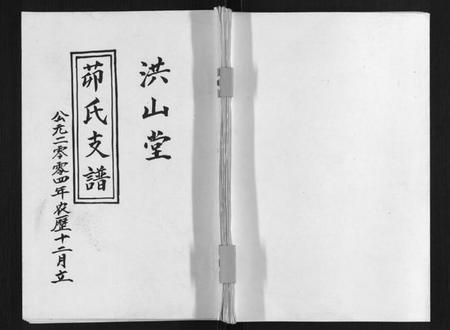 洪山堂
茆氏支譜
公元二零零四年农歷十二月立